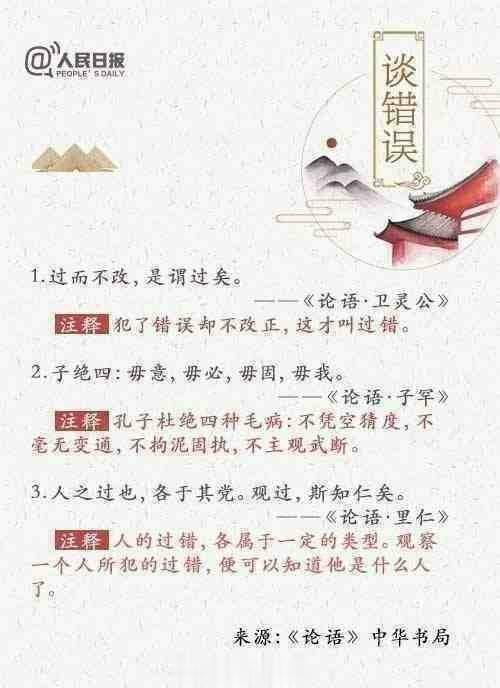 @人民日报
PEOPLE'S DAILY
谈错误
1.过而不改，是谓过矣。
——《论语·卫灵公》
注释 犯了错误却不改正，这才叫过错。
2.子绝四：毋意，毋必，毋固，毋我。
——《论语·子罕》
注释 孔子杜绝四种毛病：不凭空猜度，不
毫无变通，不拘泥固执，不主观武断。
3.人之过也，各于其党。观过，斯知仁矣。
——《论语·里仁》
注释 人的过错，各属于一定的类型。观察
一个人所犯的过错，便可以知道他是什么人
了。
来源：《论语》中华书局